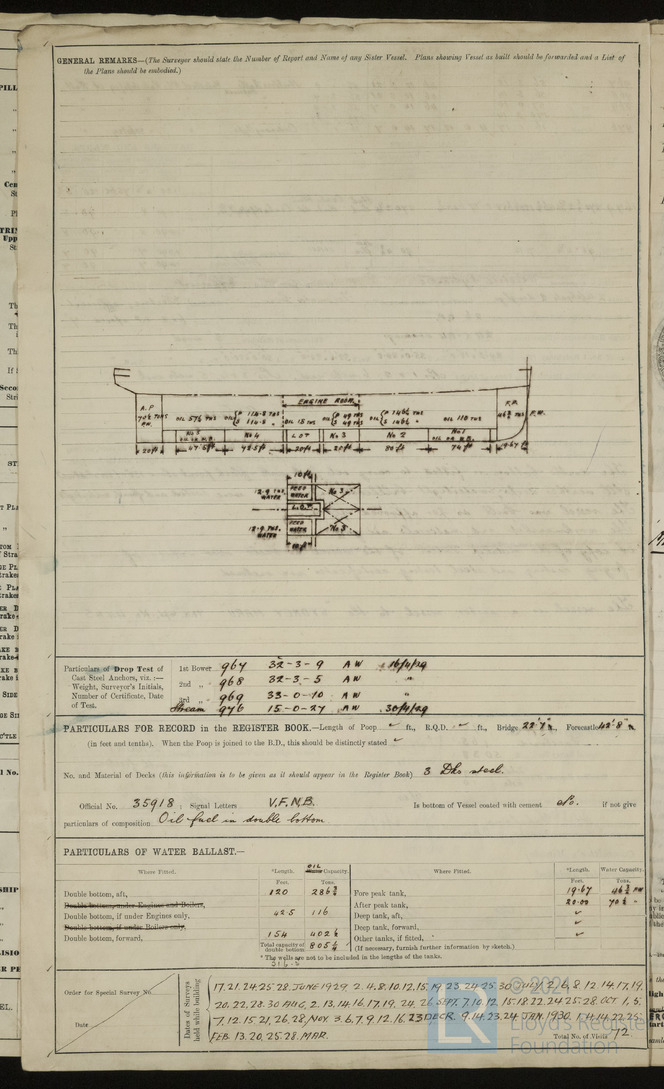 GENERAL REMARKS—(The Surveyor should state the Number of Report and Name of any Sister Vessel. Plans showing Vessel as built should be forwarded and a List of
the Plans should be embodied.)
ENGINE ROOM
A.P
70½ TONS
F.W.
OIL 57½ TNS
OIL { P 114.8 TNS
S 114.8 "
OIL 15 TNS
{ P 49 TNS
S 49 TNS
OIL { P 146¼ TNS
S 146¼ "
OIL 118 TNS
F.P.
46¾ TNS
F.W.
No 4
L.O.T
No 3
No 2
No 1
20ft
47.5ft
72.5ft
20ft
80ft
74ft
19.67ft
10ft
12.9 TNS. WATER
FEED WATER
No 3
L.O.T.
12.9 TNS. WATER
FEED WATER
No 3
Particulars of Drop Test of
Cast Steel Anchors, viz. :—
Weight, Surveyor's Initials,
Number of Certificate, Date
of Test.
1st Bower 967 32-3-9 A W 16/4/29
2nd " 968 32-3-5 A W "
3rd " 969 33-0-10 A W "
Stream 976 15-0-27 A W 30/4/29
PARTICULARS FOR RECORD in the REGISTER BOOK.—Length of Poop ✓ ft., R.Q.D. ✓ ft., Bridge 22'7" ft., Forecastle 42'8" ft.
(in feet and tenths). When the Poop is joined to the B.D., this should be distinctly stated ✓
No. and Material of Decks (this information is to be given as it should appear in the Register Book) 3 Dks steel.
Official No. 35918 ; Signal Letters V.F.N.B. Is bottom of Vessel coated with cement if not give
particulars of composition Oil fuel in double bottom
PARTICULARS OF WATER BALLAST.—
Where Fitted. *Length. OIL Capacity. Where Fitted. *Length. Water Capacity.
Feet. Tons. Feet. Tons.
Double bottom, aft, 120 286¾ Fore peak tank, 19.67 46¾ FW
Double bottom, under Engines and Boilers, After peak tank, 20.00 70½ "
Double bottom, if under Engines only, 42.5 116 Deep tank, aft, ✓
Double bottom, if under Boilers only, Deep tank, forward, ✓
Double bottom, forward, 154 402½ Other tanks, if fitted, ✓
Total capacity of double bottom 805¼ (If necessary, furnish further information by sketch.)
* The wells are not to be included in the lengths of the tanks.
Order for Special Survey No.
Date
Dates of Surveys held while building
17. 21. 24. 25. 28. JUNE 1929. 2. 4. 8. 10. 12. 15. 19. 23. 24. 25. 30 JULY 2. 6. 8. 12. 14. 17. 19.
20. 22. 28. 30 AUG. 2. 13. 14. 16. 17. 19. 24. 26 SEPT. 7. 10. 12. 15. 18. 22. 24. 25. 28. OCT 1. 5.
7. 12. 15. 21. 26. 28. NOV. 3. 6. 7. 9. 12. 16. 23 DECR. 9. 14. 23. 24 JAN. 1930. 1. 4. 14. 22. 25.
FEB. 13. 20. 25. 28. MAR.
Total No. of Visits 72.
© 2021
Lloyd's Register
Foundation